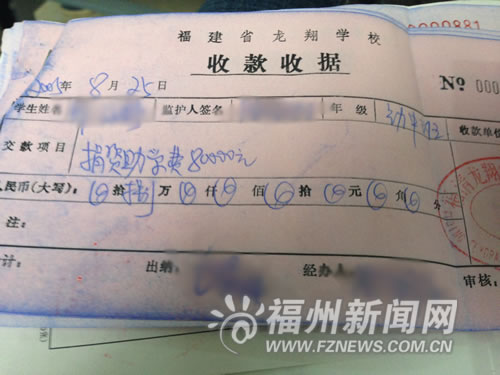 0000881
福建省龙翔学校
收款收据
№ 000
2005年8月25日
学生姓名 监护人签名 年级 幼牛班 收款单位
交款项目 捐资助学费80000元
人民币(大写) ⊗拾捌万⊗仟⊗佰⊗拾⊗元⊗角⊗分
注:
计: 出纳: 经办人 审核:
福州新闻网
WWW.FZNEWS.COM.CN